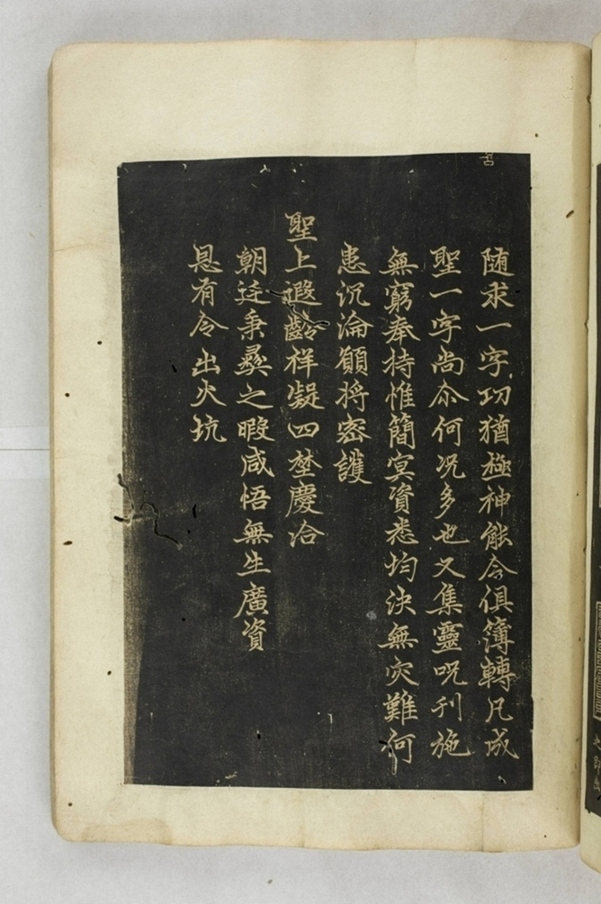 随求一字功猶極神能令俱簿轉凡成
聖一字尚尒何况多也又集靈呪刊施
無窮奉持惟簡冥資悉均決無灾難何
患沉淪願將密護
聖上遐齡祥凝四埜慶洽
朝廷秉彜之暇咸悟無生廣資
恩有令出火坑